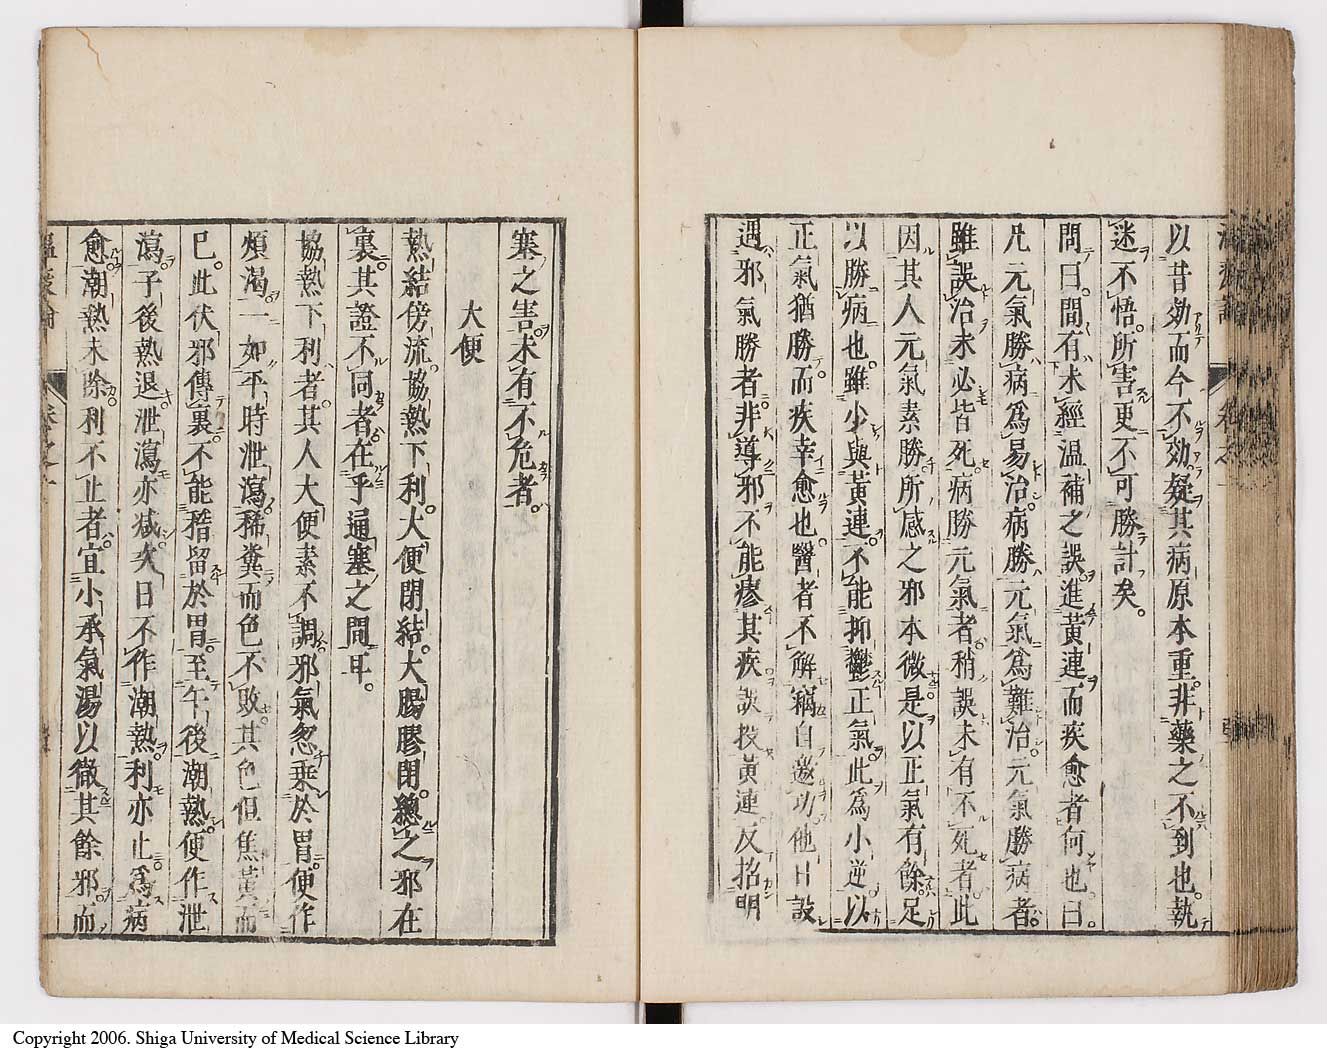 以昔効而今不効疑其病原本重非藥之不到也執
迷不悟所害更不可勝計矣
問曰間有未經温補之誤進黃連而疾愈者何也曰
凡元氣勝病爲易治病勝元氣爲難治元氣勝病者
雖誤治未必皆死病勝元氣者稍誤未有不死者此
因其人元氣素勝所感之邪本微是以正氣有餘足
以勝病也雖少與黃連不能抑鬱正氣此爲小逆以
正氣猶勝而疾幸愈也醫者不解竊自邀功他日設
遇邪氣勝者非導邪不能瘳其疾誤投黃連反招明
塞之害未有不危者
大便
熱結傍流協熱下利大便閉結大腸膠閉總之邪在
裏其證不同者在乎通塞之間耳
協熱下利者其人大便素不調邪氣忽乗於胃便作
煩渴一如平時泄瀉稀糞而色不敗其色但焦黃而
已此伏邪傳裏不能稽留於胃至午後潮熱便作泄
瀉子後熱退泄瀉亦減矣日不作潮熱利亦止爲病
愈潮熱未除利不止者宜小承氣湯以徹其餘邪而
温疫論
卷之一
Copyright 2006. Shiga University of Medical Science Library